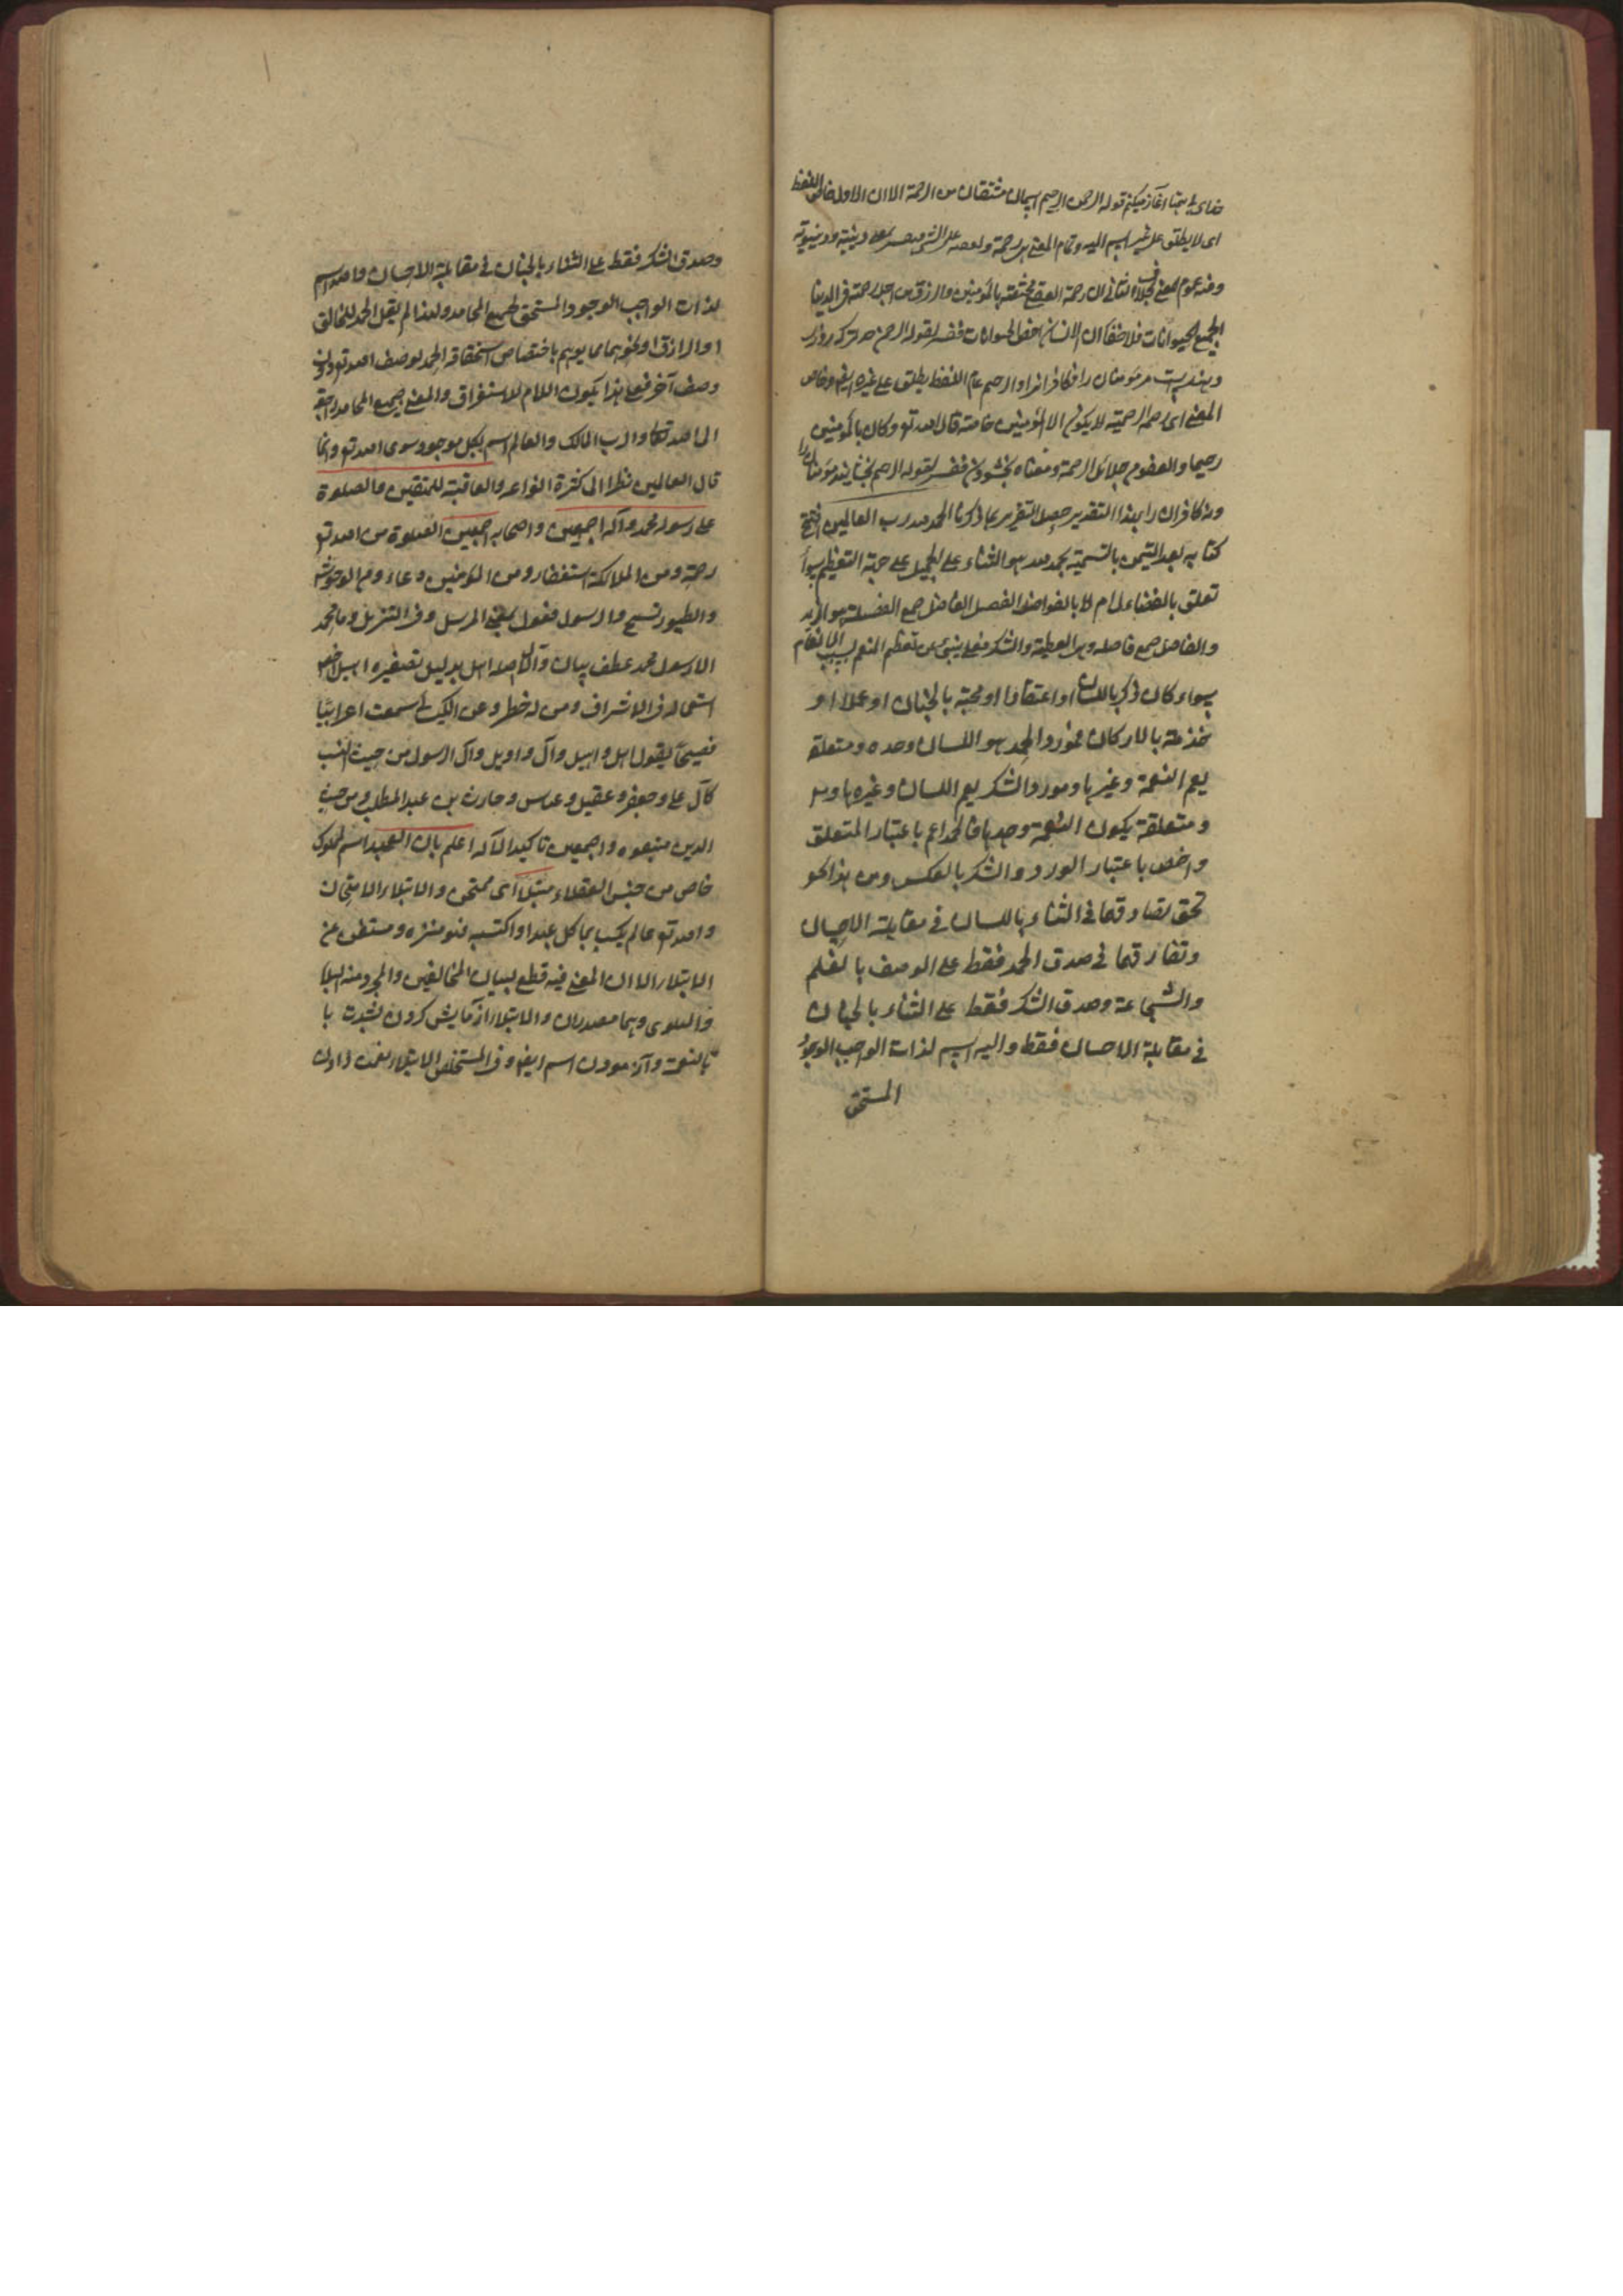 خدای را بتجا آغاز میکنم قوله الرحمن الرحیم اسمان مشتقان من الرحمة الا ان الاول خاص اللفظ
ای لا یطلق علی غیر الله وعام المعنی
ومنه عموم المعنی بخلاف الثانی لان رحمة العقبی مختصة بالمؤمنین والرزق من اجل رحمته فی الدنیا
لجمیع الحیوانات فلا خفا ان الانسان اخص الحیوانات ففسر لقوله الرحمن
مر مومنان را و کافرانرا والرحیم عام اللفظ یطلق علی غیره ایضا وخاص
المعنی ای الرحیمیة لا یکون الا للمؤمنین خاصة قال الله تع وکان بالمؤمنین
رحیما والعفو من جلائل الرحمة ومعناه بخشودن ففسر لقوله الرحیم بخشاینده مؤمنان را
ونه کافران را بهذا التقدیر حصل التقریر بما ذکرنا الحمد لله رب العالمین افتتح
کتابه بعد التیمن بالتسمیة بحمد الله هو الثناء علی الجمیل علی جهة التعظیم سواء
تعلق بالفضائل ام لا بالفواضل
والفواضل جمع فاضلة وهی العطیة والشکر فعل ینبئ عن تعظیم المنعم بسبب الانعام
سواء کان ذکر باللسان او اعتقادا او محبة بالجنان او عملا او
خدمة بالارکان فمورد الحمد هو اللسان وحده ومتعلقه
یعم النعمة وغیرها ومورد الشکر یعم اللسان وغیره
ومتعلقه یکون النعمة وحدها فالحمد اعم باعتبار المتعلق
واخص باعتبار المورد والشکر بالعکس ومن هذا نحو
تحقق تصادقهما فی الثناء باللسان فی مقابلة الاحسان
وتفارقهما فی صدق الحمد فقط علی الوصف بالعلم
والشجاعة وصدق الشکر فقط علی الثناء بالجنان
فی مقابلة الاحسان فقط والله اسم لذات الواجب الوجود
المستحق
وصدق الشکر فقط علی الثناء بالجنان فی مقابلة الاحسان والله اسم
لذات الواجب الوجود المستحق لجمیع المحامد ولهذا لم یقل الحمد للخالق
او الرازق او نحوهما مما یوهم باختصاص استحقاقه الحمد بوصف الله تع دون
وصف آخر فعلی هذا یکون اللام للاستغراق والمعنی جمیع المحامد راجعة
الی الله تعالی والرب المالک والعالم اسم لکل موجود سوی الله تع وانما
قال العالمین نظرا الی کثرة انواعه والعاقبة للمتقین والصلوة
علی رسوله محمد وآله اجمعین واصحابه اجمعین الصلوة من الله تع
رحمة ومن الملائکة استغفار ومن المؤمنین دعاء ومن الوحوش
والطیور تسبیح والرسول فعول بمعنی المرسل وفی التنزیل وما محمد
الا رسول محمد عطف بیان وآل اصله اهل بدلیل تصغیره اهیل خص
استعماله فی الاشراف ومن له خطر وعن الکسائی سمعت اعرابیا
فصیحا یقول اهل واهیل وآل واویل وآل الرسول من حیث النسب
کآل علی وجعفر وعقیل وعباس وحارث بن عبد المطلب ومن حیث
الدین متبعوه واجمعین تاکید لآله اعلم بان العبد اسم لمملوک
خاص من جنس العقلاء مبتلا ای ممتحن والابتلاء الامتحان
والله تع عالم یکسب بما کل عبد او اکتسبه فهو منزه ومستغنی عن
الابتلاء الا ان المعنی فیه قطع لسان المخالفین والمجرد منه البلاء
والبلوی وهما مصدران والابتلاء آزمایش کردن بشدت یا
بالنعمة وآزمودن اسم ایضا وفی المستخلص الابتلاء نعمت دادن